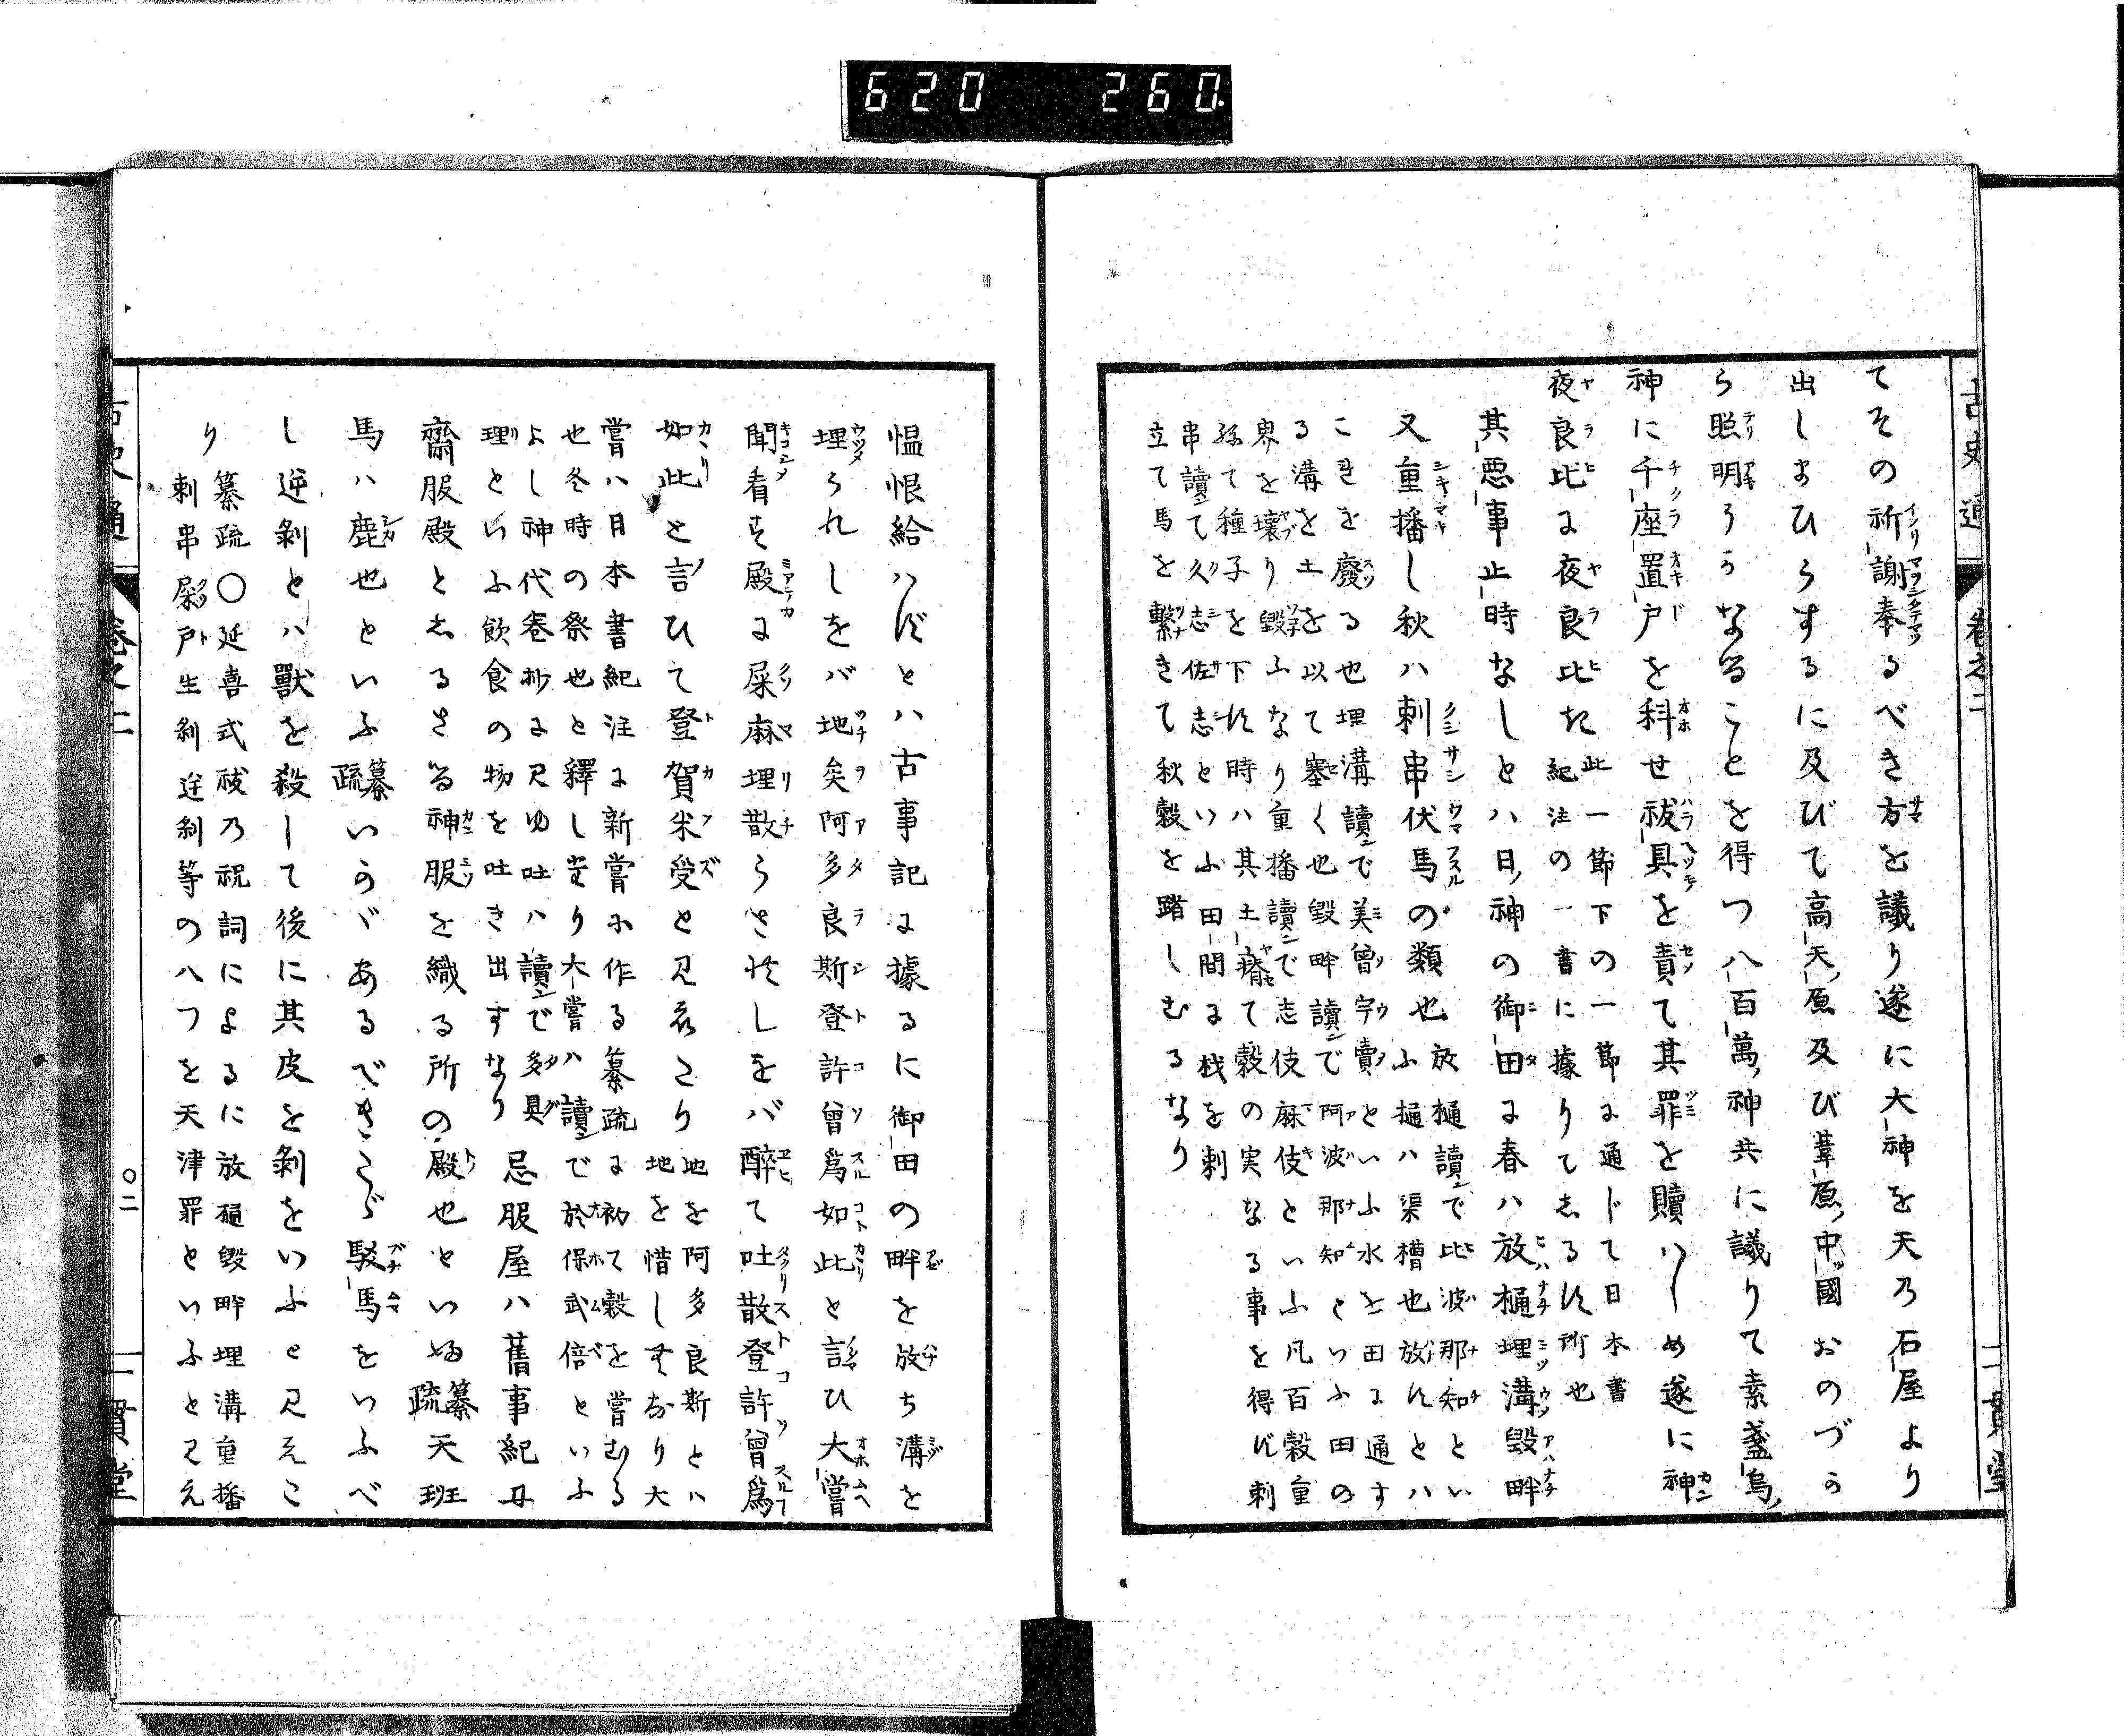 620 260.
古史通 卷之二 二貫堂
てその祈謝奉るべき方を議り遂に大神を天乃石屋より
出しまひらするに及びて高天原及び葦原中國おのづか
ら照明らかなることを得つ八百萬神共に議りて素盞烏
神に千座置戸を科せ祓具を責て其罪を贖ハしめ遂に神
夜良比に夜良比き
此一節下の一節に通じて日本書
紀注の一書に據りてしるす所也
其惡事止時なしとハ日神の御田に春ハ放樋埋溝毀畔
又重播し秋ハ刺串伏馬の類也
放樋讀で比波那知とい
ふ樋ハ渠槽也放すとハ
こぼきを廢る也埋溝讀で美曾宇賣といふ水を田に通す
る溝を土を以て塞く也毀畔讀で阿波那知といふ田の
界を壞り毀ふなり重播讀で志伎麻伎といふ凡百穀重
ねて種子を下す時ハ其土瘠て穀の実なる事を得ず刺
串讀て久志佐志といふ田間に杙を刺
立て馬を繫きて秋穀を踏しむるなり
慍恨給ハずとハ古事記に據るに御田の畔を放ち溝を
埋られしをバ地矣阿多良斯登許曾爲如此と詔ひ大嘗
聞看す殿に屎麻理散らされしをバ醉て吐散登許曾爲
如此と言ひて登賀米受と見えたり
地を阿多良斯とハ
地を惜し世なり大
嘗ハ日本書紀注に新嘗に作る纂疏に初て穀を嘗むる
也冬時の祭也と釋し世り大嘗ハ讀で於保武倍といふ
よし神代卷抄に見ゆ吐ハ讀で多具
理といふ飮食の物を吐き出すなり
忌服屋ハ舊事紀に
齋服殿としるさる神服を織る所の殿也といふ
纂疏
天班
馬ハ鹿也といふ
纂疏
いかゞあるべきこゝに駁馬をいふべ
し逆剝とハ獸を殺して後に其皮を剝をいふと見えた
り
纂疏〇延喜式祓乃祝詞によるに放樋毀畔埋溝重播
刺串屎戸生剝逆剝等の八つを天津罪といふと見え
古史通 卷之二 〇二 二貫堂